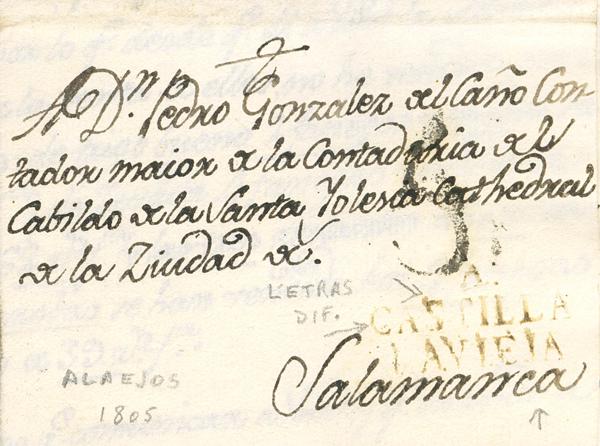 A Dn. Pedro Gonzalez del Caño Con
tador maior de la Contaduria del
Cabildo de la Santa Yglesia Cathedral
de la Ziudad de.
LETRAS
DIF.
A.
CASTILLA
LAVIEJA
Salamanca
ALAEJOS
1805